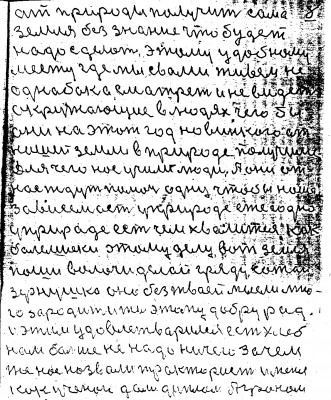 от природы получит сама 8
земля без знание что будет
надо сделат, этому удобному
месту где мы свами живем не
однабака сматрет и не видет
с укружающие в людях чего бы
они на этот год новинкого от
нашй земли в природе получили
для чего нас учили люди, а они от
нас ждут помоч одну, чтобы наша
зависемаст у природе сегодня
у природе ест чем хвалится как
балешаки этому делу, вот земля
паши волочи делай гряду сажай
зернушко оно без твоей мысели мно-
го зародит и ты этому добру рад.
и этим удовлетварился ест хлеб
нам болше не надо ничего зачем
же нас назвали практарист и меня
как ученои дали диплом Агроном